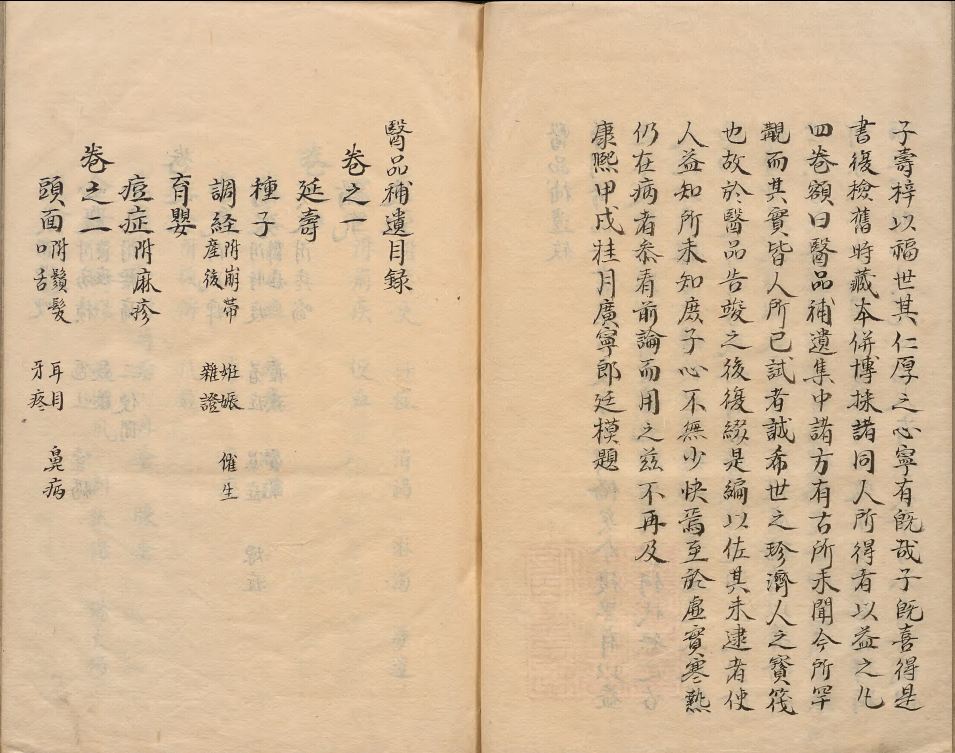 子壽梓以福世其仁厚之心寧有既哉子既喜得是
書復檢舊時藏本併博採諸同人所得者以益之凡
四卷額曰醫品補遺集中諸方有古所未聞今所罕
覯而其實皆人所已試者誠希世之珍濟人之寳筏
也故於醫品告竣之後復綴是編以佐其未逮者使
人益知所未知庻子心不無少快焉至於虛實寒熱
仍在病者叅看前論而用之茲不再及
康熙甲戌桂月廣寧郎廷模題
醫品補遺目録
卷之一
延壽
種子
調経 附崩帯 產後 妊娠 雜證 催生
育嬰
痘症 附麻疹
卷之二
頭面 附鬚髮 口舌 耳目 牙疼 鼻病